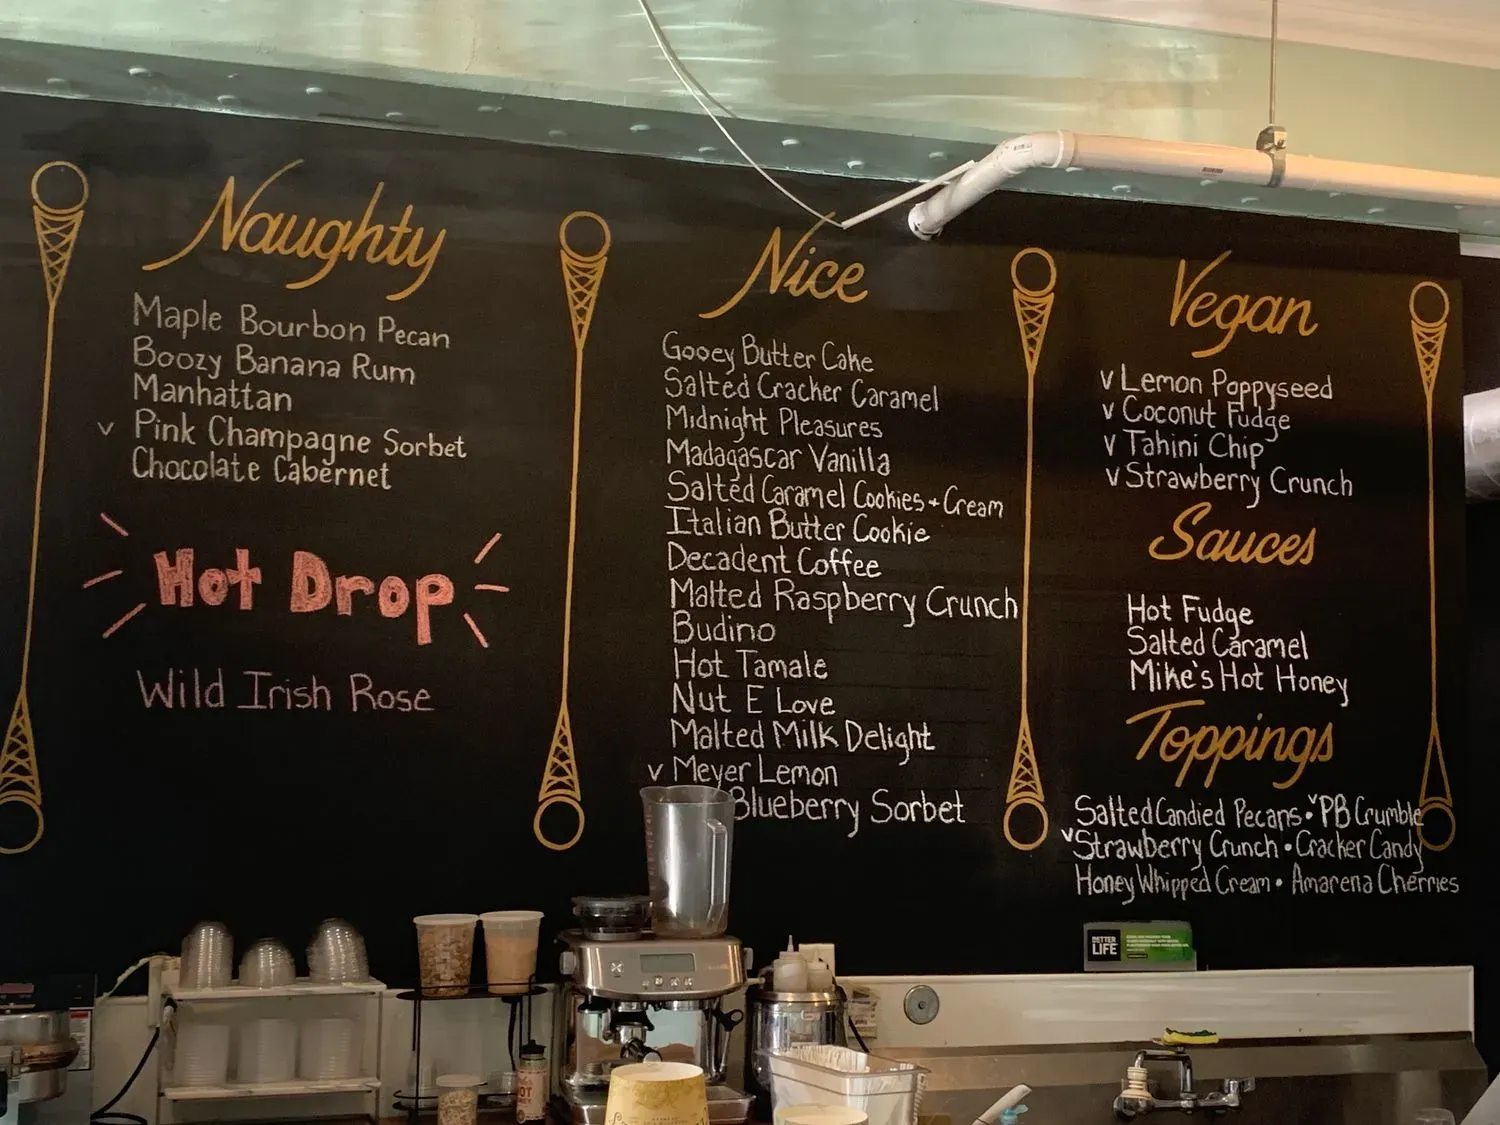 Naughty
Maple Bourbon Pecan
Boozy Banana Rum
Manhattan
v Pink Champagne Sorbet
Chocolate Cabernet
Hot Drop
Wild Irish Rose
Nice
Gooey Butter Cake
Salted Cracker Caramel
Midnight Pleasures
Madagascar Vanilla
Salted Caramel Cookies + Cream
Italian Butter Cookie
Decadent Coffee
Malted Raspberry Crunch
Budino
Hot Tamale
Nut E Love
Malted Milk Delight
v Meyer Lemon
Blueberry Sorbet
Vegan
v Lemon Poppyseed
v Coconut Fudge
v Tahini Chip
v Strawberry Crunch
Sauces
Hot Fudge
Salted Caramel
Mike's Hot Honey
Toppings
Salted Candied Pecans • v PB Crumble
v Strawberry Crunch • Cracker Candy
Honey Whipped Cream • Amarena Cherries
BETTER
LIFE